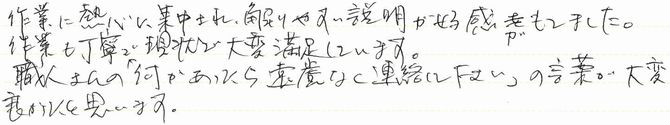 作業に熱心に集中され、解りやすい説明が好感がもてました。
作業も丁寧で現状で大変満足しています。
職人さんの「何かあったら遠慮なく連絡に下さい」の言葉が大変
良かったと思います。